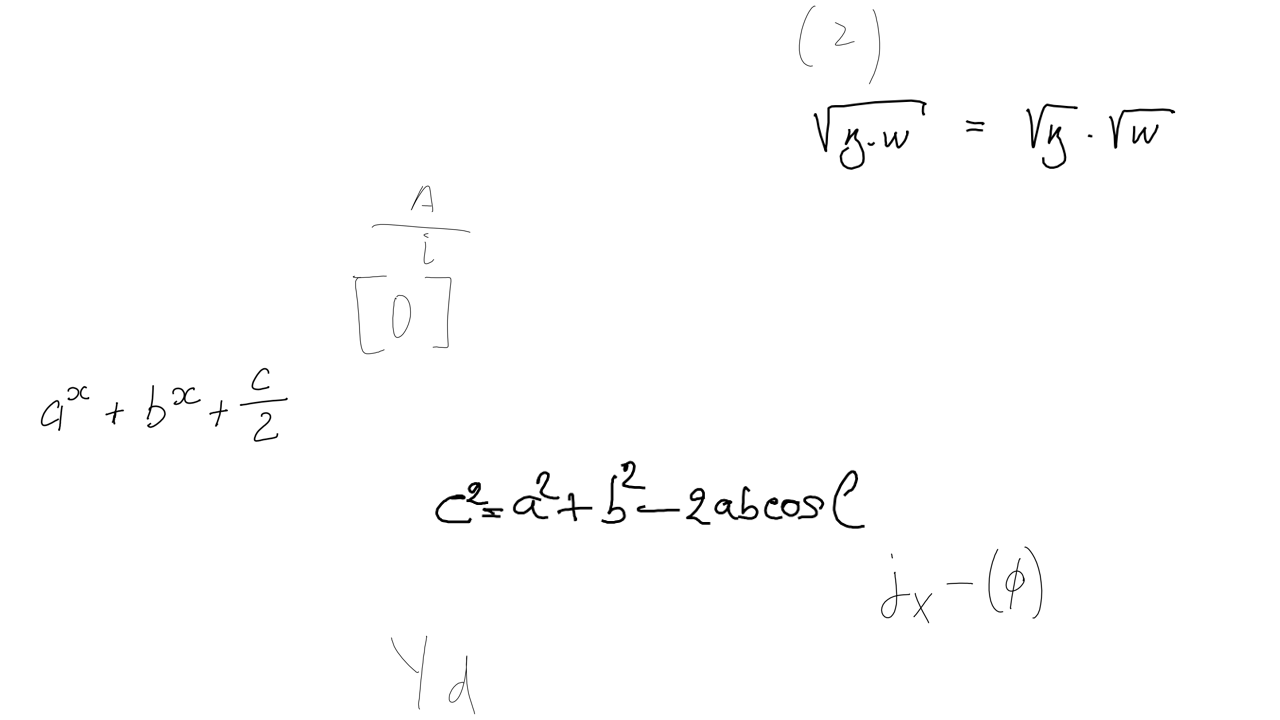 (2)
√(z·w) = √z · √w
A/i
[0]
a^x + b^x + c/2
c² = a² + b² - 2abcosC
j_x - (ϕ)
Y_d